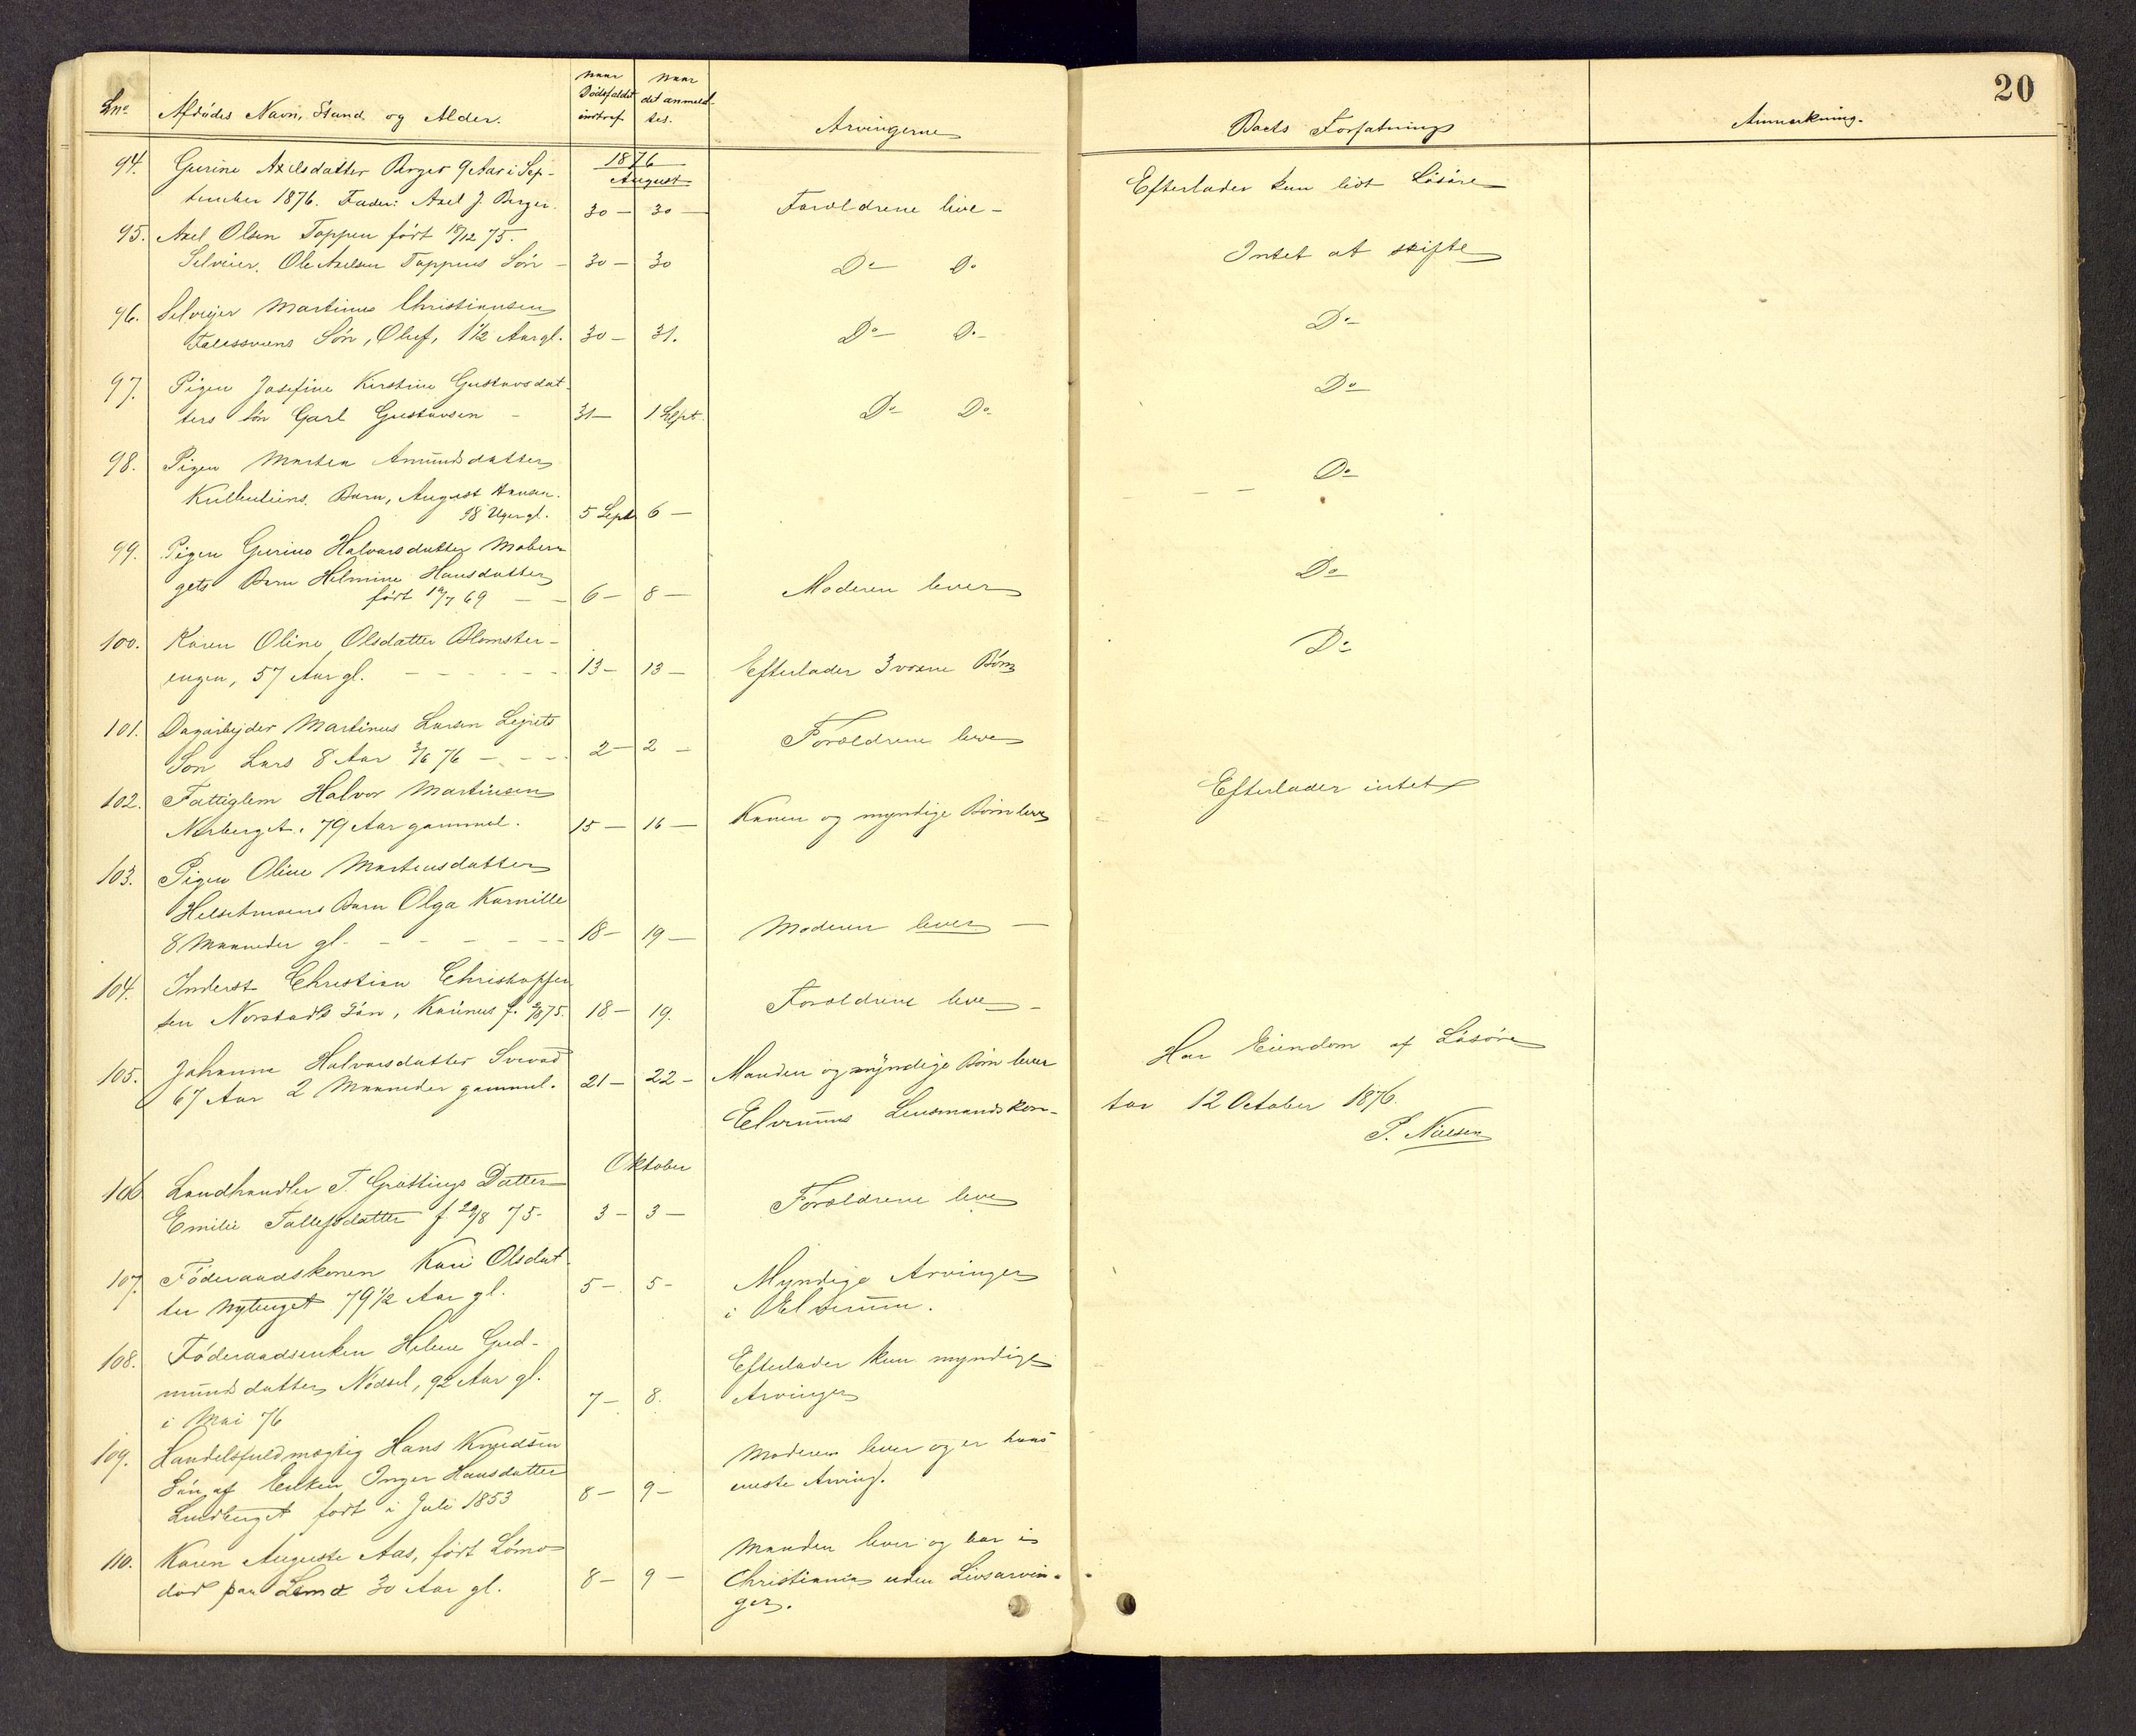 20
Lno. Afdødes Navn, Stand og Alder. naar Dødsfaldet indtraf naar det anmeldtes. Arvingerne Boets Forfatning Anmerkning.
1876
August
94. Gurine Axelsdatter Berger 9 Aar i Sep- Efterlader kun lidt Løsøre
tember 1876. Fader: Axel J. Berger. 30 — 30 — Foreldrene live -
95. Axel Olsen Toppen født 18/12 75. Intet at skifte
Selveier. Ole Axelsen Toppens Søn - 30 — 30 Do Do
96. Selveier Martinus Christiansen Do
Søn, Oluf, 1 1/2 Aar gl. 30 — 31. Do Do
97. Pigen Josefine Kirstine Gustavsdat- Do
ters Søn Carl Gustavsen - 31 — 1 Sept. Do Do
98. Pigen Marthea Amundsdatter Do
Barn, August Hansen.
18 Uger gl. 5 Septr 6 —
99. Pigen Gurine Halvorsdatter Mober- Do
gets Barn Helmine Hansdatter
født 69 — 6 — 8 — Moderen lever
100. Karen Oline Olsdatter Blomster- Do
engen, 57 Aar gl. 13 — 13 — Efterlader 3 voxne Børn
101. Dagarbejder Martinus Larsen Lejrets
Søn Lars 8 Aar 3/6 76 — 2 — 2 — Foreldrene leve
102. Fattiglem Halvor Martinsen Efterlader intet
Norberget. 79 Aar gammel. 15 — 16 — Konen og myndige Børn leve
103. Pigen Oline Martensdatter
Helsetmoens Barn Olga Karnille
8 Maaneder gl. 18 — 19 — Moderen lever —
104. Inderst Christian Christoffer-
sen Norstads Søn, Karinus f. 75. 18 — 19. Foreldrene leve -
105. Johanne Halvorsdatter Svevad Har Eiendom af Løsøre
67 Aar 2 Maaneder gammel. 21 — 22 - Manden og myndige Børn lever
Elverums Lensmandskon-
tor 12 October 1876.
P. Nielsen
Oktober
106 Landhandler T. Grøttings Datter
Emilie Tollefsdatter f 29/8 75. 3 — 3 — Foreldrene leve
107. Føderaadskonen Kari Olsdat-
ter Nyberget 79 1/2 Aar gl. 5 — 5 - Myndige Arvinger
i Elverum.
108. Føderaadsenken Helene Gud-
mundsdatter Nødsel, 92 Aar gl.
i Mai 76 7 — 8. Efterlader kun myndige
Arvinger
109. Handelsfuldmægtig Hans Knudsen
Søn af Enken Inger Hansdatter
Lindberget født i Juli 1853 8 — 9 — Moderen lever og er hans
eneste Arving.
110. Karen Auguste Aas, født Lømo
død paa Lømo 30 Aar gl. 8 — 9 — Manden lever og bor i
Christiania uden Livsarvin-
ger.